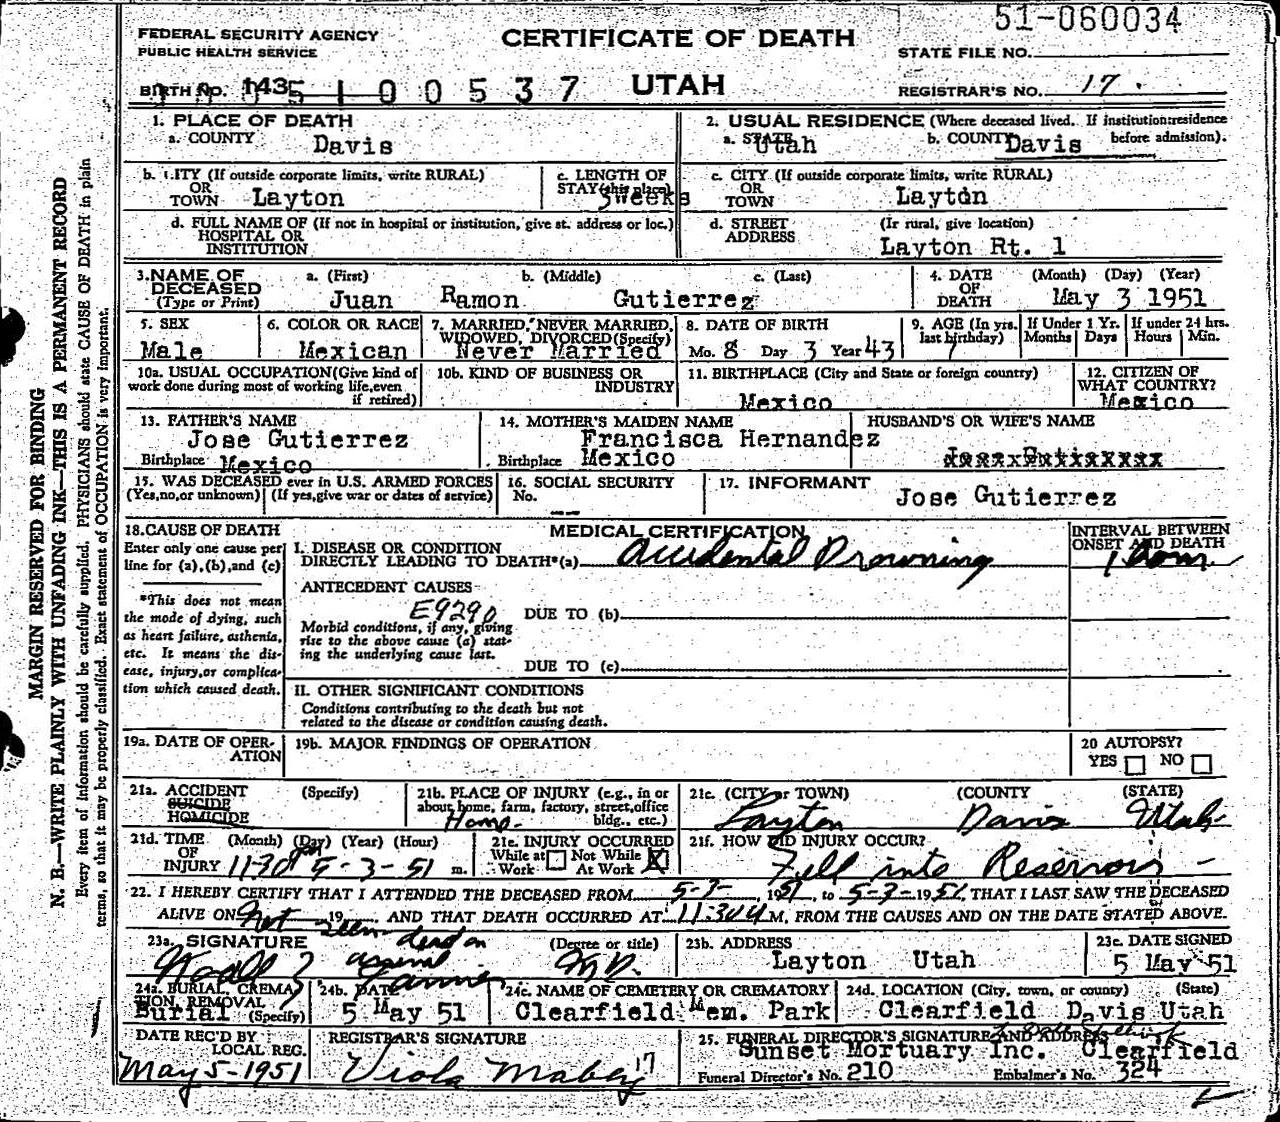 51-060034
FEDERAL SECURITY AGENCY
PUBLIC HEALTH SERVICE
CERTIFICATE OF DEATH
STATE FILE NO.
BIRTH NO. 143 5 1 0 0 5 3 7
UTAH
REGISTRAR'S NO. 17
1. PLACE OF DEATH
a. COUNTY Davis
2. USUAL RESIDENCE (Where deceased lived. If institution: residence before admission).
a. STATE Utah b. COUNTY Davis
b. CITY (If outside corporate limits, write RURAL)
OR
TOWN Layton
c. LENGTH OF
STAY (this place)
3weeks
c. CITY (If outside corporate limits, write RURAL)
OR
TOWN Layton
d. FULL NAME OF (If not in hospital or institution, give st. address or loc.)
HOSPITAL OR
INSTITUTION
d. STREET ADDRESS (If rural, give location)
Layton Rt. 1
3. NAME OF DECEASED (Type or Print)
a. (First) b. (Middle) c. (Last)
Juan Ramon Gutierrez
4. DATE OF DEATH (Month) (Day) (Year)
May 3 1951
5. SEX
Male
6. COLOR OR RACE
Mexican
7. MARRIED, NEVER MARRIED, WIDOWED, DIVORCED (Specify)
Never Married
8. DATE OF BIRTH
Mo. 8 Day 3 Year 43
9. AGE (In yrs. last birthday) 7
If Under 1 Yr. Months Days
If under 24 hrs. Hours Min.
10a. USUAL OCCUPATION (Give kind of work done during most of working life, even if retired)
10b. KIND OF BUSINESS OR INDUSTRY
11. BIRTHPLACE (City and State or foreign country)
Mexico
12. CITIZEN OF WHAT COUNTRY?
Mexico
13. FATHER'S NAME
Jose Gutierrez
Birthplace Mexico
14. MOTHER'S MAIDEN NAME
Francisca Hernandez
Birthplace Mexico
HUSBAND'S OR WIFE'S NAME
15. WAS DECEASED ever in U.S. ARMED FORCES
(Yes, no, or unknown) (If yes, give war or dates of service)
16. SOCIAL SECURITY
No. --
17. INFORMANT
Jose Gutierrez
18. CAUSE OF DEATH
Enter only one cause per line for (a), (b), and (c)
*This does not mean the mode of dying, such as heart failure, asthenia, etc. It means the disease, injury, or complication which caused death.
MEDICAL CERTIFICATION
INTERVAL BETWEEN ONSET AND DEATH
I. DISEASE OR CONDITION
DIRECTLY LEADING TO DEATH*(a) Accidental Drowning
ANTECEDENT CAUSES
E9290
DUE TO (b)
Morbid conditions, if any, giving rise to the above cause (a) stating the underlying cause last.
DUE TO (c)
II. OTHER SIGNIFICANT CONDITIONS
Conditions contributing to the death but not related to the disease or condition causing death.
19a. DATE OF OPERATION
19b. MAJOR FINDINGS OF OPERATION
20 AUTOPSY?
YES NO
21a. ACCIDENT (Specify)
SUICIDE
HOMICIDE
21b. PLACE OF INJURY (e.g., in or about home, farm, factory, street, office bldg., etc.)
Home
21c. (CITY or TOWN) (COUNTY) (STATE)
Layton Davis Utah
21d. TIME OF INJURY (Month) (Day) (Year) (Hour)
11:30 5-3-51 m.
21e. INJURY OCCURRED
While at Work Not While At Work X
21f. HOW DID INJURY OCCUR?
Fell into Reservoir -
22. I HEREBY CERTIFY THAT I ATTENDED THE DECEASED FROM 5-3- 1951, to 5-3-1951, THAT I LAST SAW THE DECEASED
ALIVE ON Not seen 19 , AND THAT DEATH OCCURRED AT 11:30 M, FROM THE CAUSES AND ON THE DATE STATED ABOVE.
dead on arrival
23a. SIGNATURE (Degree or title)
M.D.
23b. ADDRESS
Layton Utah
23c. DATE SIGNED
5 May 51
24a. BURIAL, CREMATION, REMOVAL (Specify)
Burial
24b. DATE
5 May 51
24c. NAME OF CEMETERY OR CREMATORY
Clearfield Mem. Park
24d. LOCATION (City, town, or county) (State)
Clearfield Davis Utah
DATE REC'D BY LOCAL REG.
May 5-1951
REGISTRAR'S SIGNATURE
Viola Mabey 17
25. FUNERAL DIRECTOR'S SIGNATURE AND ADDRESS
Sunset Mortuary Inc. Clearfield
Funeral Director's No. 210 Embalmer's No. 324
MARGIN RESERVED FOR BINDING
N. B.—WRITE PLAINLY WITH UNFADING INK—THIS IS A PERMANENT RECORD
Every item of information should be carefully supplied. PHYSICIANS should state CAUSE OF DEATH in plain
terms, so that it may be properly classified. Exact statement of OCCUPATION is very important.